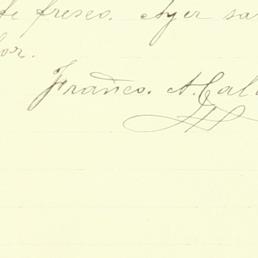 te fresco. Ayer sa
or.
Franco. A. Cal